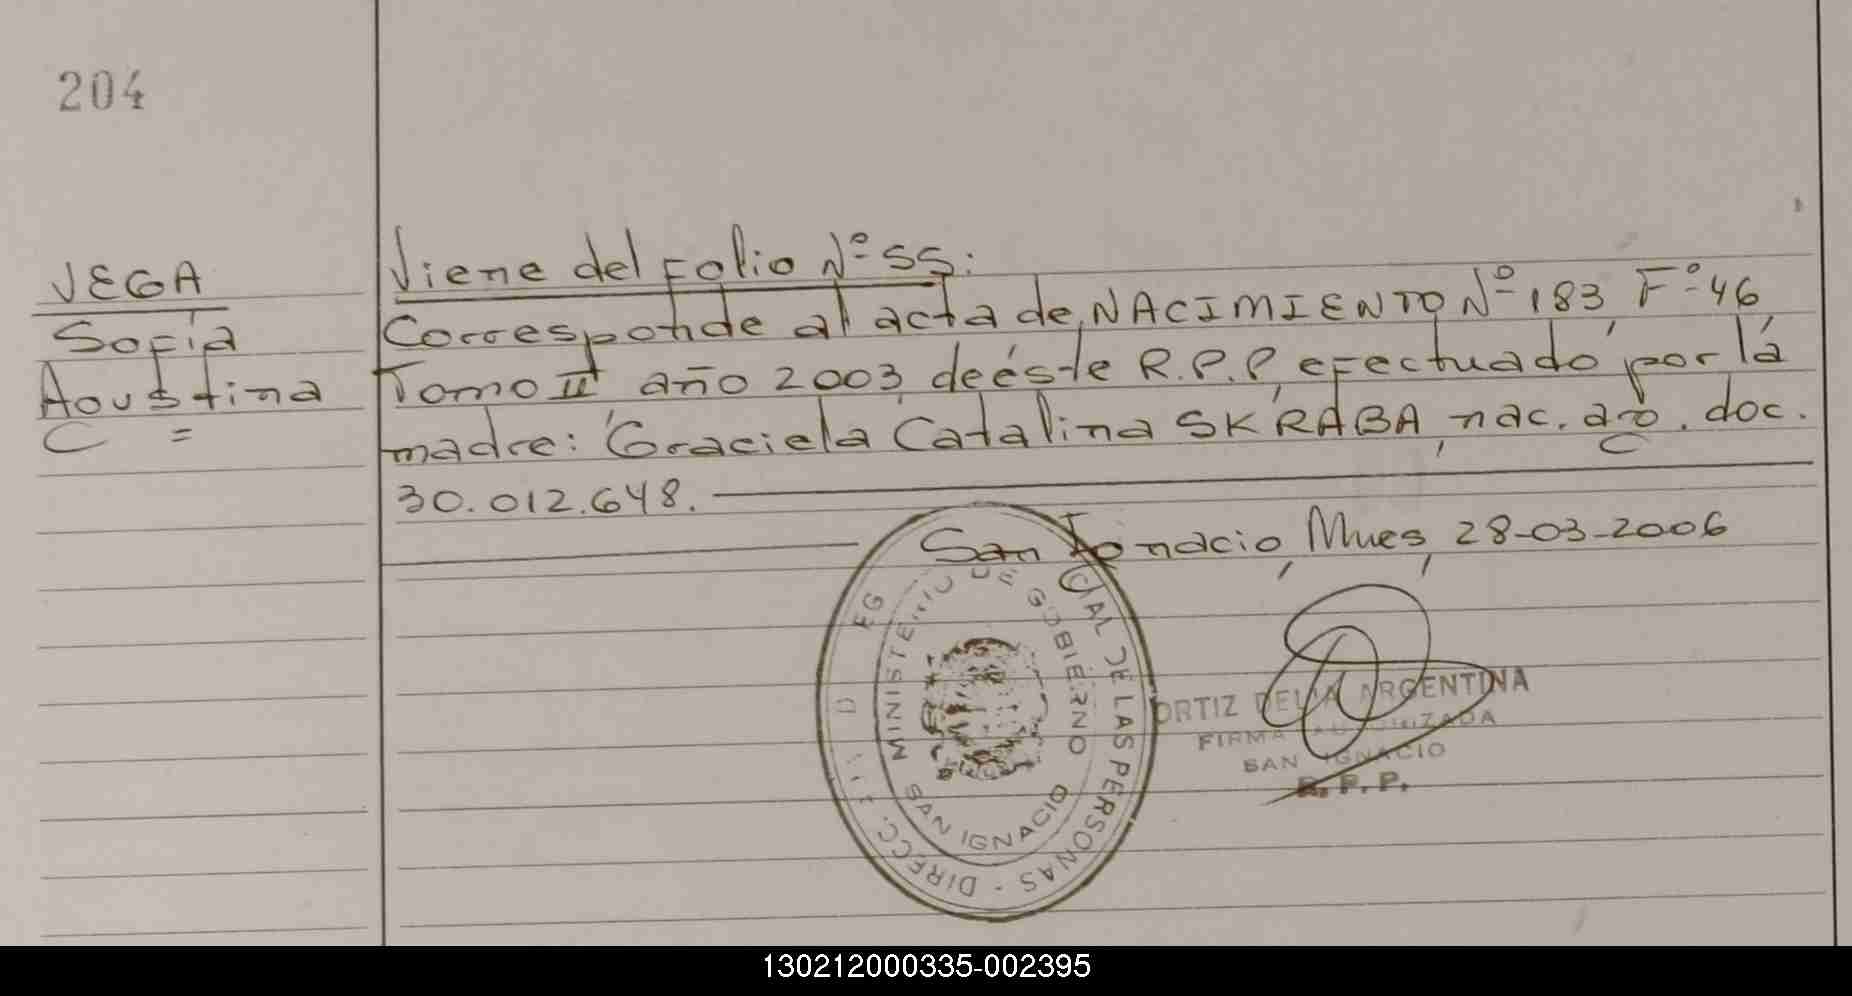 204
VEGA
Sofía
Agustina
=
Viene del Folio Nº 55:
Corresponde al acta de NACIMIENTO Nº 183, Fº 46,
Tomo II año 2003, de éste R.P.P, efectuado por la
madre: Graciela Catalina SKRABA, nac. arg. doc.
30.012.648.
San Ignacio, Mnes, 28-03-2006
MINISTERIO DE GOBIERNO
CIAL DE LAS PERSONAS - DIRECC.
SAN IGNACIO
ORTIZ DELIA ARGENTINA
FIRMA AUTORIZADA
SAN IGNACIO
R.P.P.
130212000335-002395